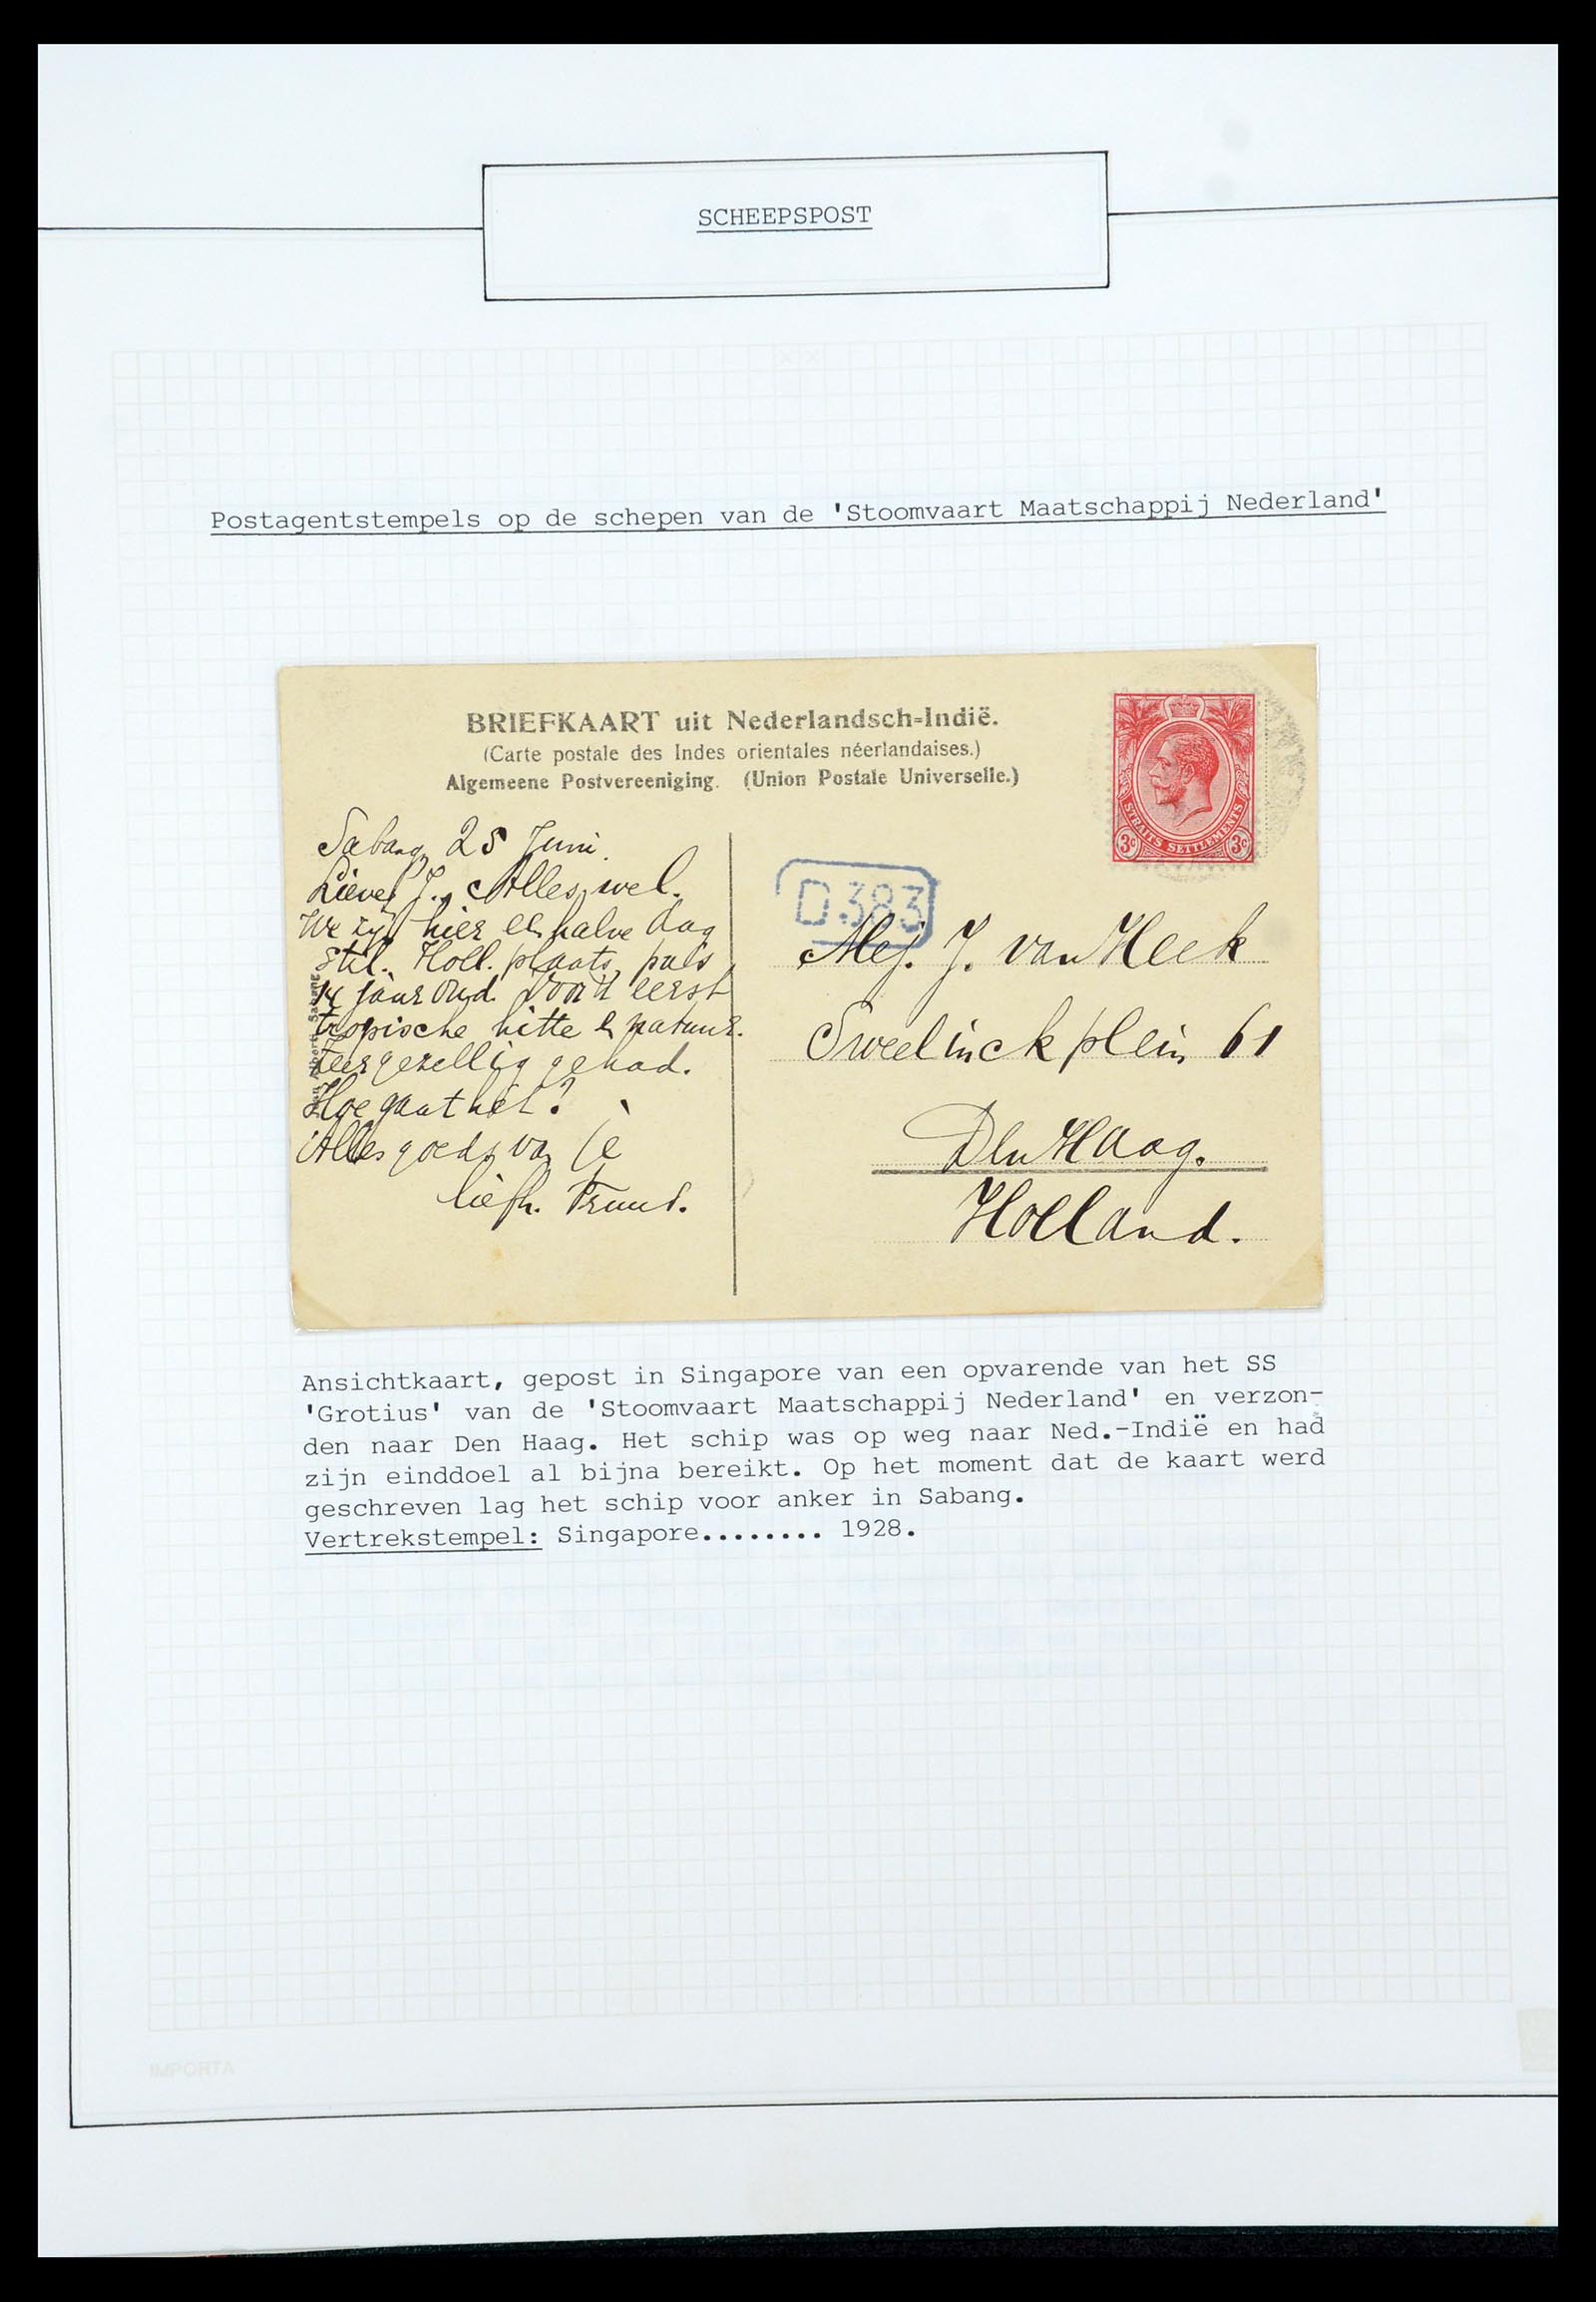 SCHEEPSPOST
Postagentstempels op de schepen van de 'Stoomvaart Maatschappij Nederland'
BRIEFKAART uit Nederlandsch-Indië.
(Carte postale des Indes orientales néerlandaises.)
Algemeene Postvereeniging. (Union Postale Universelle.)
STRAITS SETTLEMENTS
3c 3c
Sabang 25 Juni.
Lieve J., Alles wel.
We zijn hier een halve dag
stil. Holl. plaats, pas
14 jaar oud. Voor't eerst
tropische hitte en natuur.
Zeer gezellig gehad.
Hoe gaat het?
Alles goeds van je
liefh. Truus.
D.383
Mej. J. van Heek
Sweelinckplein 61
Den Haag.
Holland.
Ansichtkaart, gepost in Singapore van een opvarende van het SS
'Grotius' van de 'Stoomvaart Maatschappij Nederland' en verzon-
den naar Den Haag. Het schip was op weg naar Ned.-Indië en had
zijn einddoel al bijna bereikt. Op het moment dat de kaart werd
geschreven lag het schip voor anker in Sabang.
Vertrekstempel: Singapore........ 1928.
IMPORTA